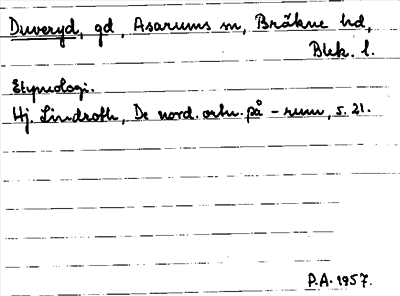 Duveryd, gd, Asarums sn, Bräkne hd,
Blek. l.
Etymologi.
Hj. Lindroth, De nord. ortn. på -rum, s. 21.
P.A. 1957.